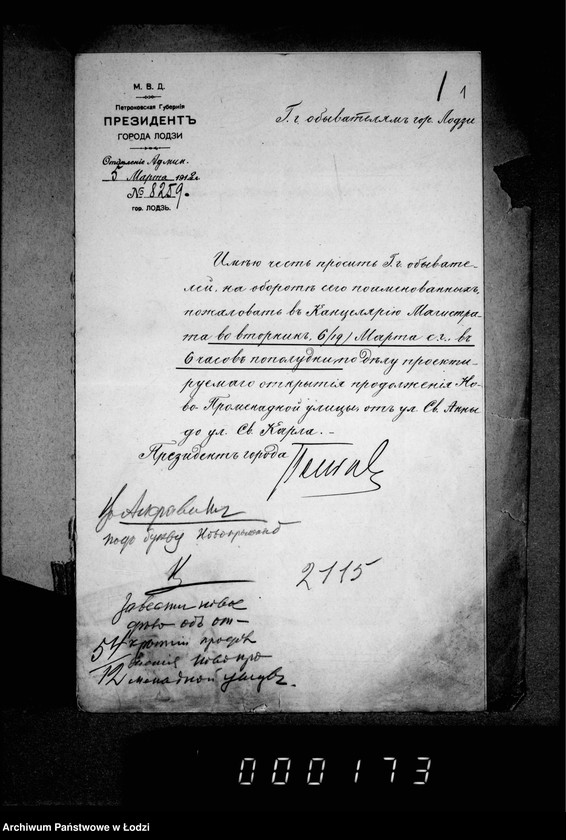 1 1
М. В. Д.
Петроковская Губернія
ПРЕЗИДЕНТЪ
ГОРОДА ЛОДЗИ
Отдѣленіе Админ.
5 Марта 1912 г.
№ 8259.
гор. ЛОДЗЬ.
Г.г. обывателямъ гор. Лодзи
Имѣю честь просить Г.г. обывате-
лей, на оборотѣ сего поименованныхъ,
пожаловать въ Канцелярію Магистра-
та во вторникъ, 6/19/ Марта с.г., въ
6 часовъ пополудни, по дѣлу проекти-
руемаго открытія продолженія Но-
во-Променадной улицы, отъ ул. Св. Анны
до ул. Св. Карла.
Президентъ города
2115
Завести новое
дѣло объ от-
крытіи продол
женія Новопро
менадной улицы.
54/12
000173
Archiwum Państwowe w Łodzi